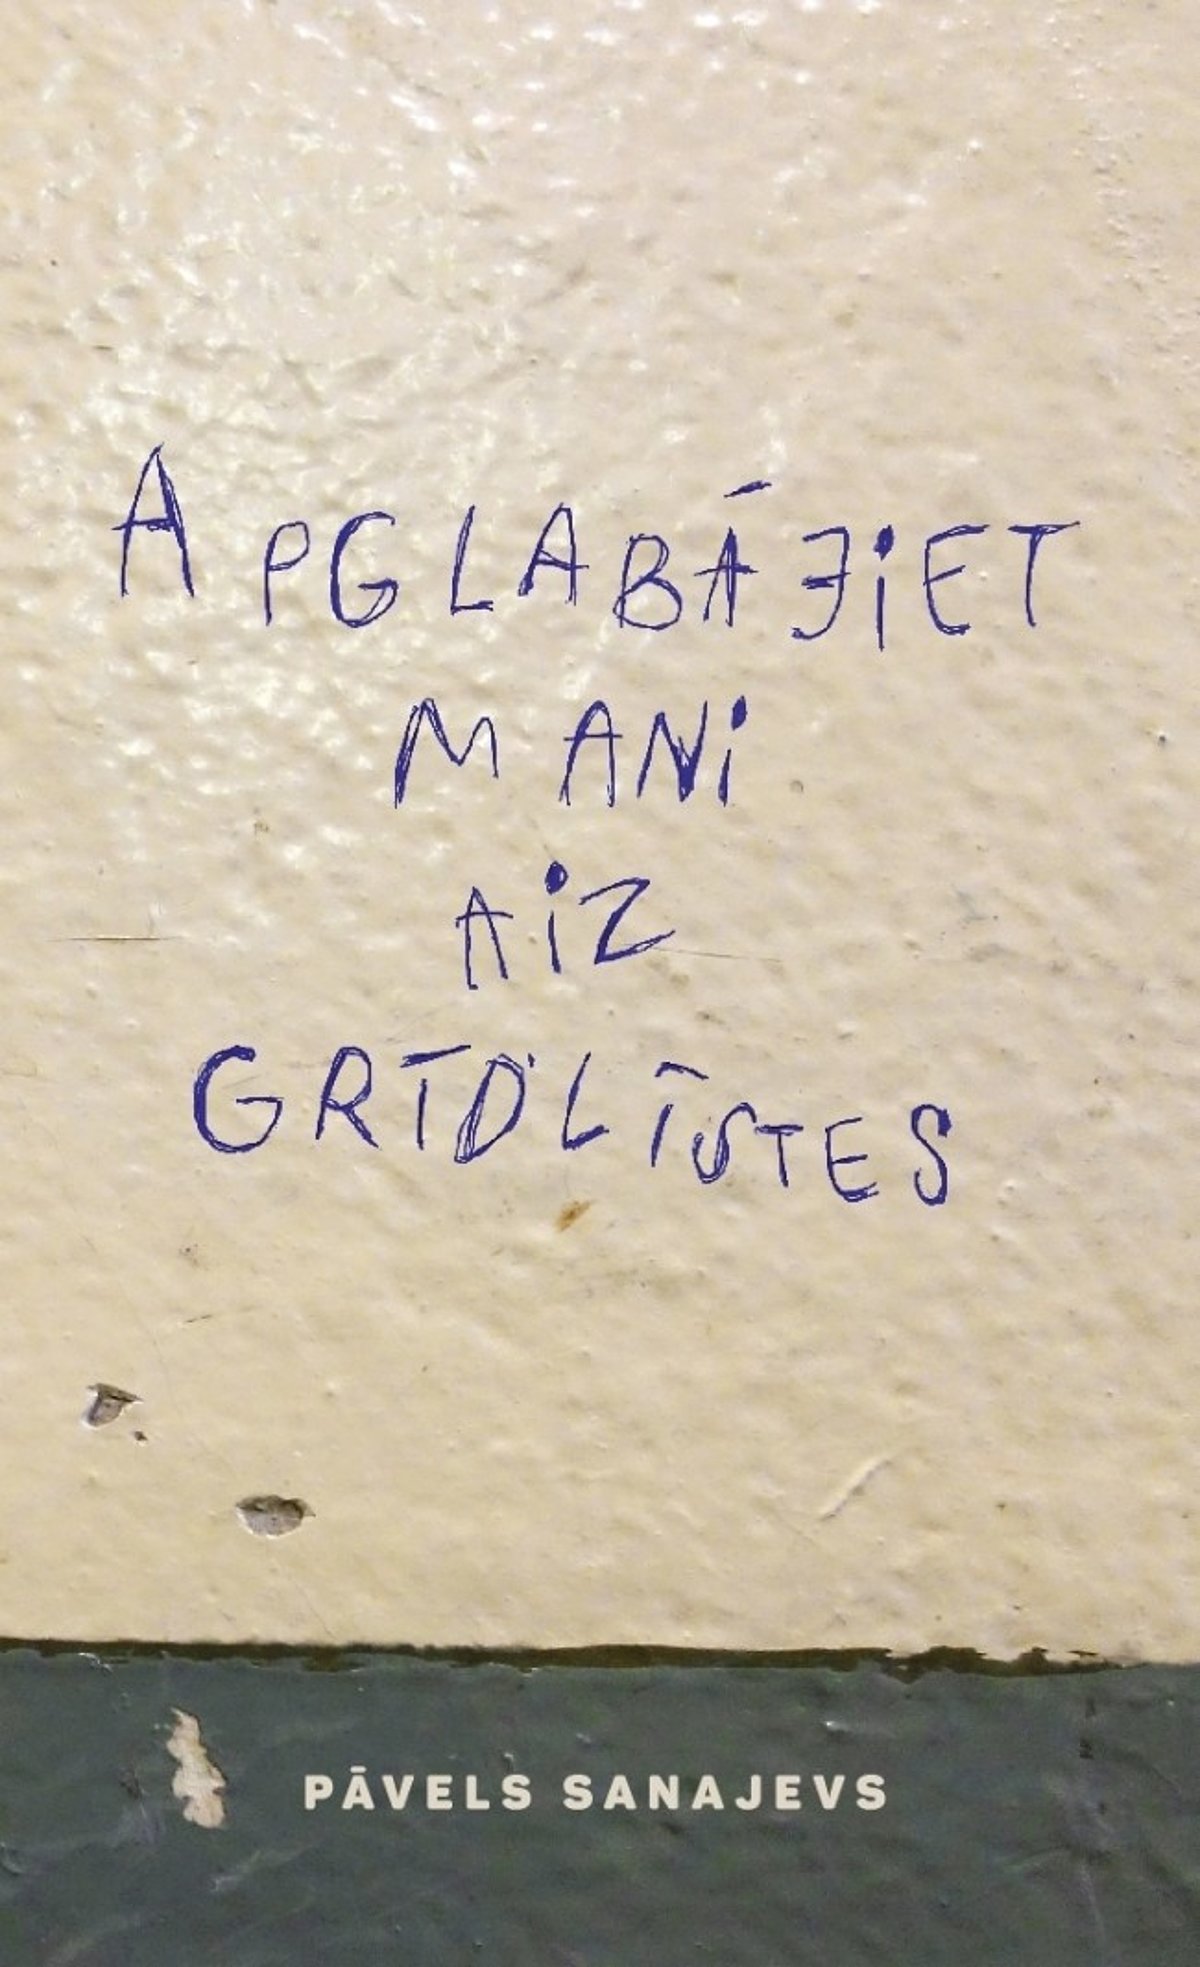 APGLABĀJIET
MANI
AIZ
GRĪDLĪSTES
PĀVELS SANAJEVS